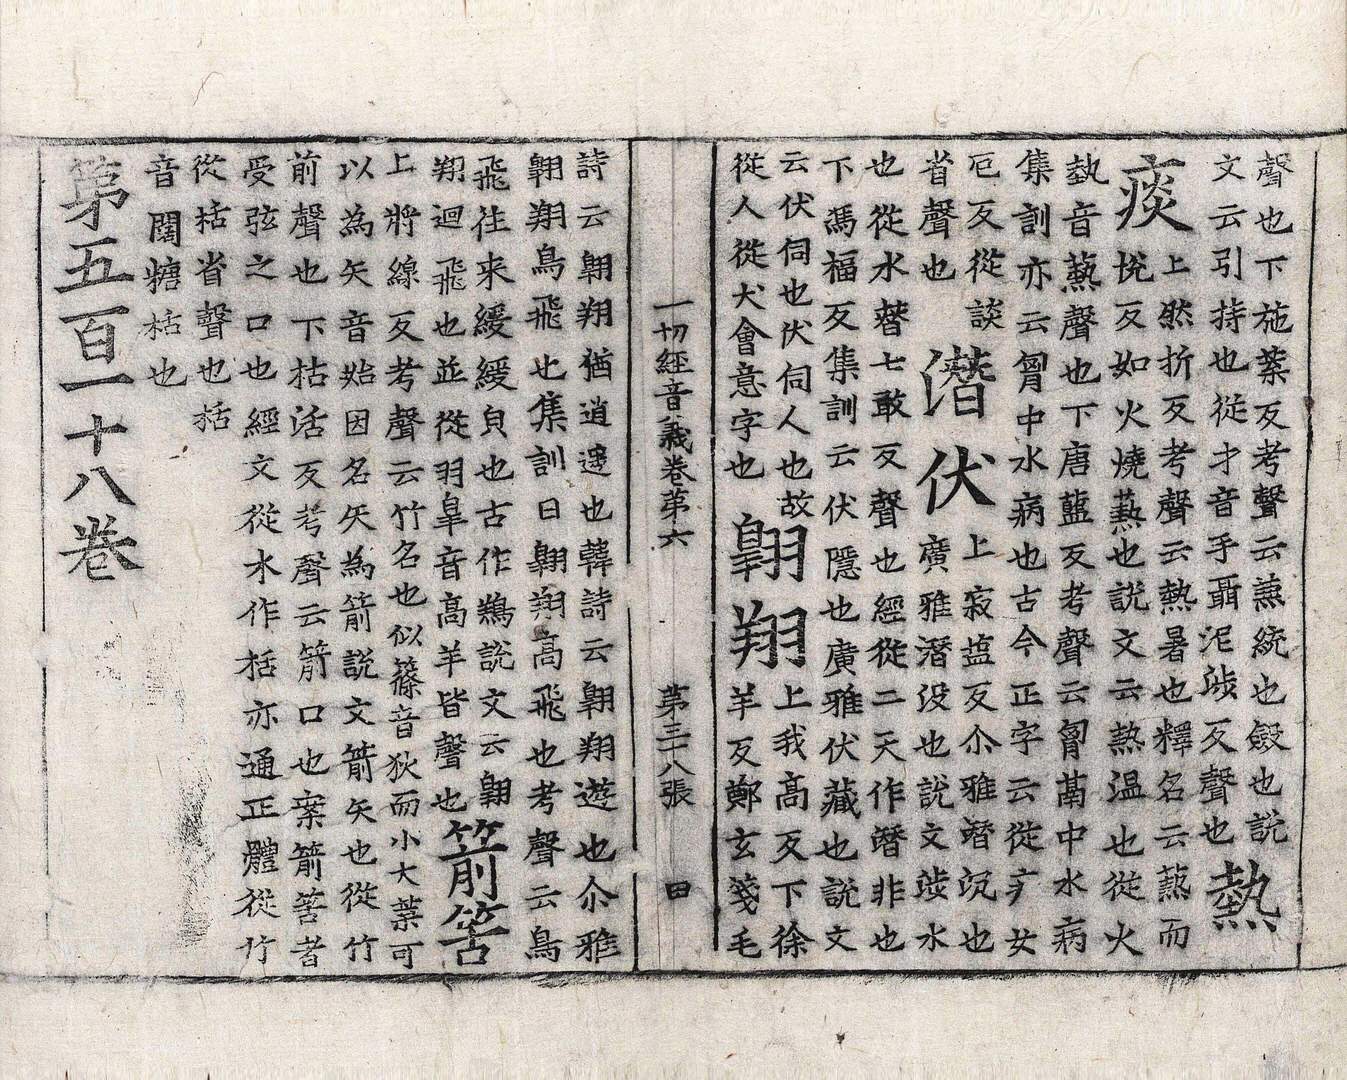 聲也下施蘂反考聲云蘂統也毈也說
文云引持也從才音手聶泥涉反聲也熱
痰上然折反考聲云熱暑也釋名云爇而
悅反如火燒爇也說文云熱温也從火
埶音爇聲也下唐藍反考聲云胷鬲中水病
集訓亦云胷中水病也古今正字云從疒女
厄反從談
省聲也
潛伏上寂塩反尒雅潛沉也
廣雅潛没也說文涉水
也從水朁七敢反聲也經從二天作潛非也
下馮福反集訓云伏隱也廣雅伏藏也說文
云伏伺也伏伺人也故
從人從犬會意字也
翺翔上我高反下徐
羊反鄭玄箋毛
一切經音義卷第六 第三十八張 田
詩云翺翔猶逍遥也韓詩云翺翔遊也尒雅
翺翔鳥飛也集訓曰翺翔高飛也考聲云鳥
飛往來緩緩皃也古作鷎說文云翺
翔迴飛也並從羽皐音高羊皆聲也
箭筈
上將線反考聲云竹名也似篠音狄而小大葉可
以為矢音始因名矢為箭說文箭矢也從竹
前聲也下枯活反考聲云箭口也案箭筈者
受弦之口也經文從木作栝亦通正體從竹
從栝省聲也栝
音闊糖栝也
第五百一十八卷